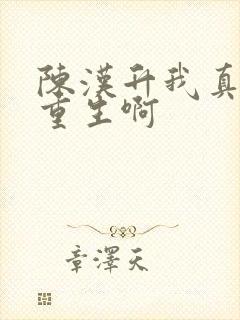 陳漢升我真
重生啊
章澤天